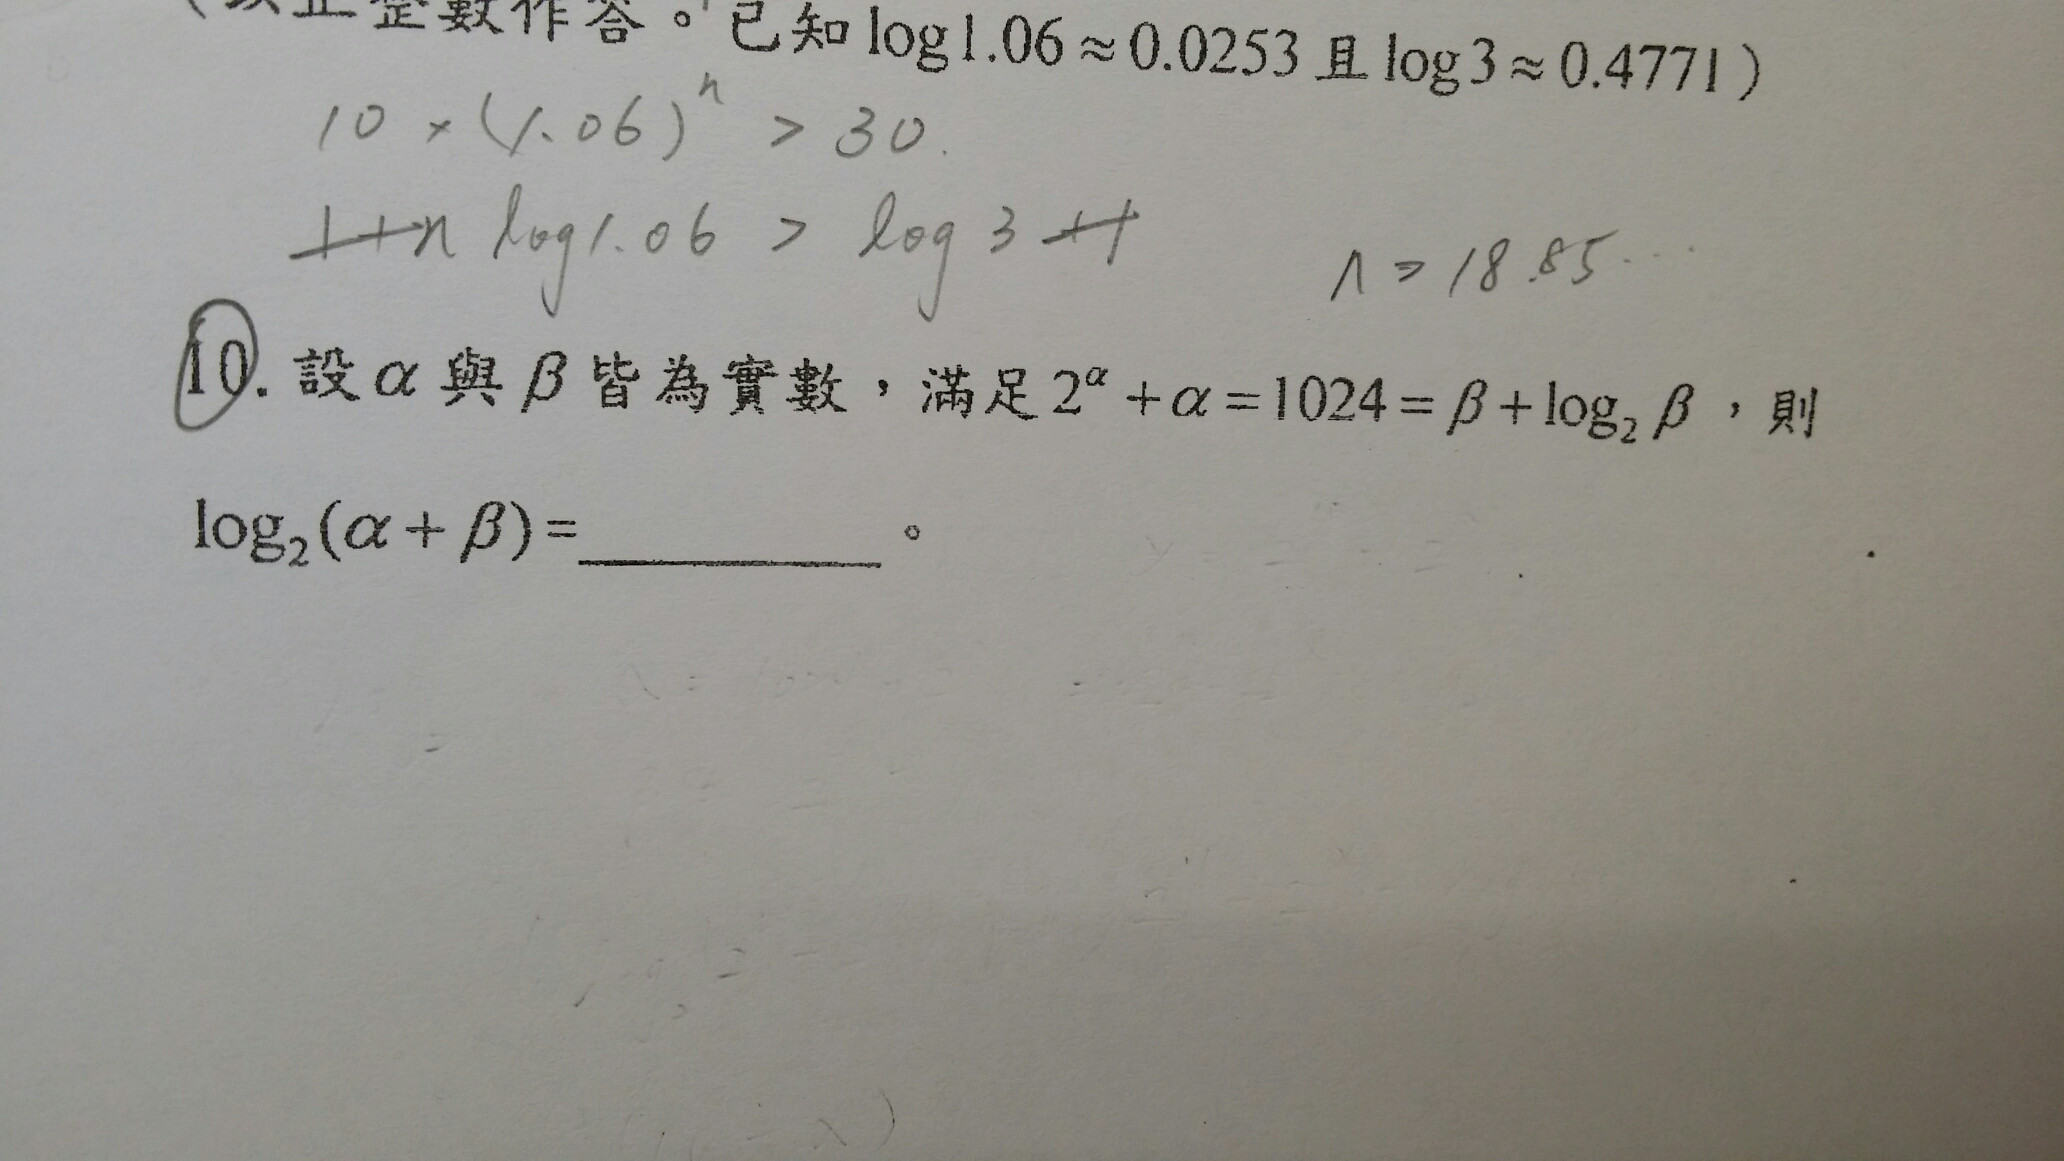 以正整數作答。已知 log1.06≈0.0253 且 log3≈0.4771)
10 × (1.06)ⁿ > 30.
1+n log1.06 > log 3 +1
n > 18.85....
10. 設 α 與 β 皆為實數，滿足 2^α + α = 1024 = β + log₂ β ，則
log₂(α + β) = ________ 。